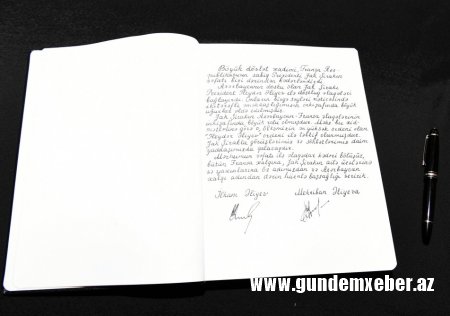 Böyük dövlət xadimi, Fransa Res-
publikasının sabiq Prezidenti Jak Şirakın
vəfatı bizi dərindən kədərləndirdi.
Azərbaycanın dostu olan Jak Şirakı
Prezident Heydər Əliyev ilə dostluq əlaqələri
bağlayırdı. Onların birgə səyləri nəticəsində
ikitərəfli münasibətlərimizin inkişafında böyük
uğurlar əldə edilmişdir.
Jak Şirakın Azərbaycan-Fransa əlaqələrinin
inkişafında böyük rolu olmuşdur. Məhz bu xid-
mətlərinə görə o, ölkəmizin ən yüksək ordeni olan
"Heydər Əliyev" ordeni ilə təltif olunmuşdur.
Jak Şirakla görüşlərimiz və söhbətlərimiz daim
yaddaşımızda qalacaqdır.
Mərhumun vəfatı ilə əlaqədar kədəri bölüşür,
bütün Fransa xalqına, Jak Şirakın ailə üzvlərinə
və yaxınlarına öz adımızdan və Azərbaycan
xalqı adından dərin hüznlə başsağlığı veririk.
İlham Əliyev Mehriban Əliyeva
www.gundemxeber.az